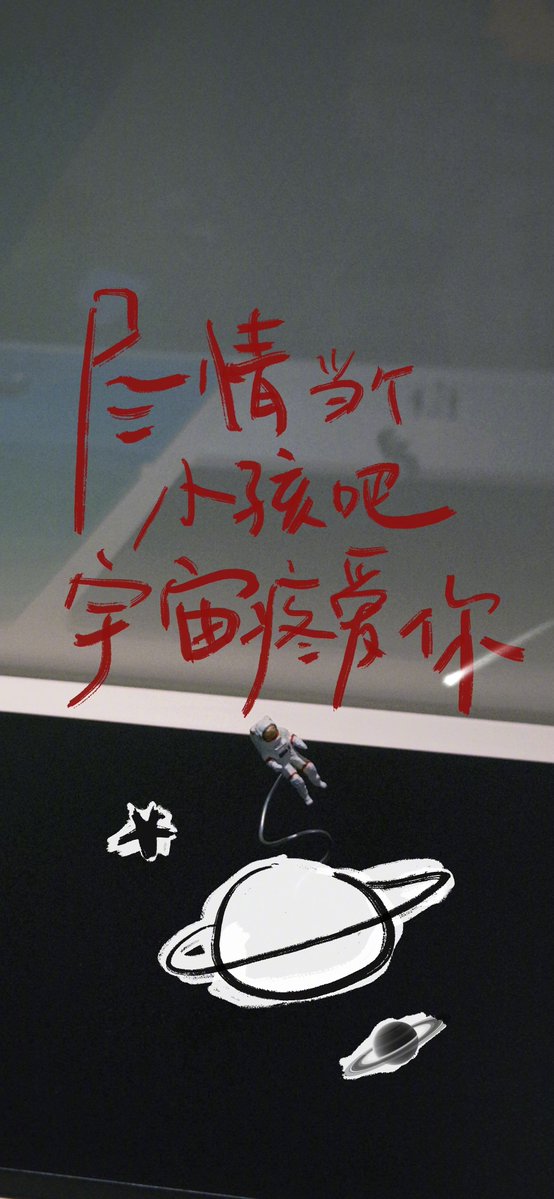 尽情当个
小孩吧
宇宙疼爱你